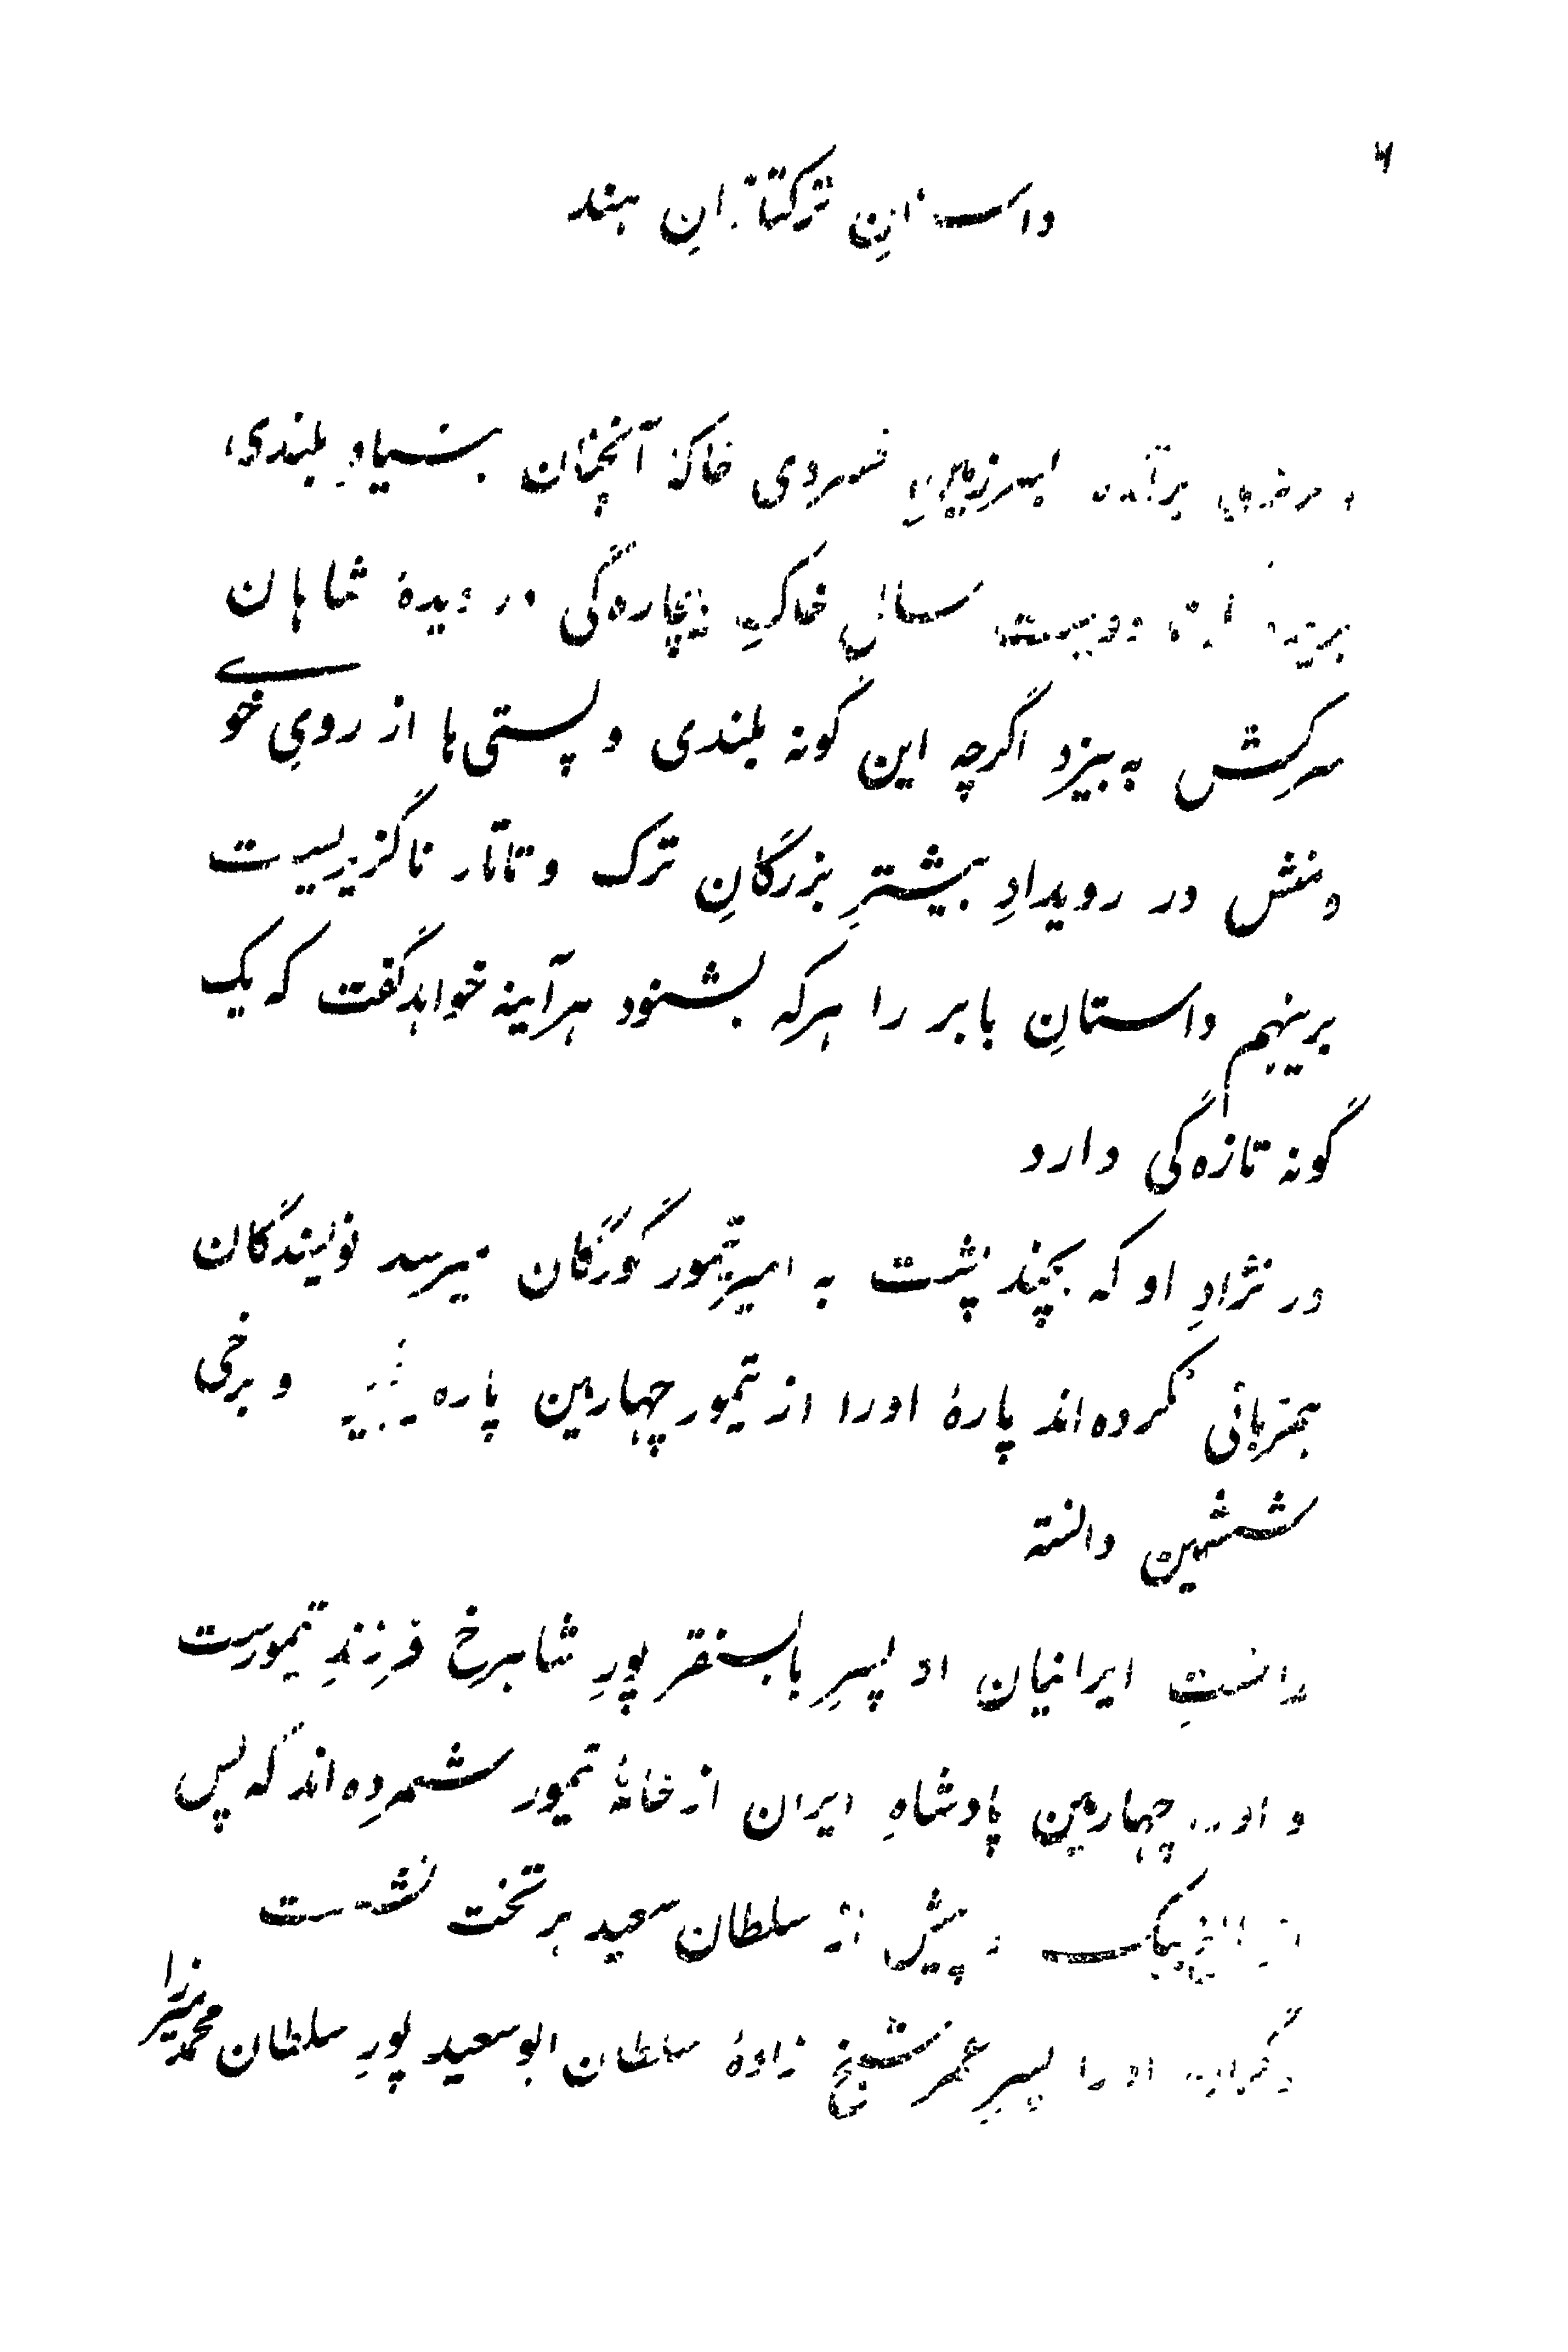 ۶
داستانِ ترکتازانِ هند
خسروی خاکهٔ آنچنان بنیادِ بلندی
دویست سال خاکِ بیچاره‌گی در دیدهٔ شاهان
سرکش به بیزد اگرچه این گونه بلندی و پستی‌ها از رویِ خوی
و منش در رویدادِ بیشترِ بزرگانِ ترک و تاتار ناگزیریست
برینهم داستانِ بابر را هرکه بشنود هرآینه خواهد گفت که یک
گونه تازه‌گی دارد
در نژادِ او که بچند پشت به امیر تیمور گورگان میرسد نویسندگان
همزبانی نکرده‌اند پارهٔ اورا از تیمور چهارمین پاره و برخی
ششمین دانسته
دانستِ ایرانیان او پسرِ بابسنقر پورِ شاهرخ فرزندِ تیمورست
و اورا چهارمین پادشاهِ ایران از خانهٔ تیمور شمرده‌اند که پس
از الغ بیک و پیش از سلطان سعید بر تخت نشست
اورا پسرِ عمر شیخ زادهٔ سلطان ابوسعید پورِ سلطان محمد میرزا